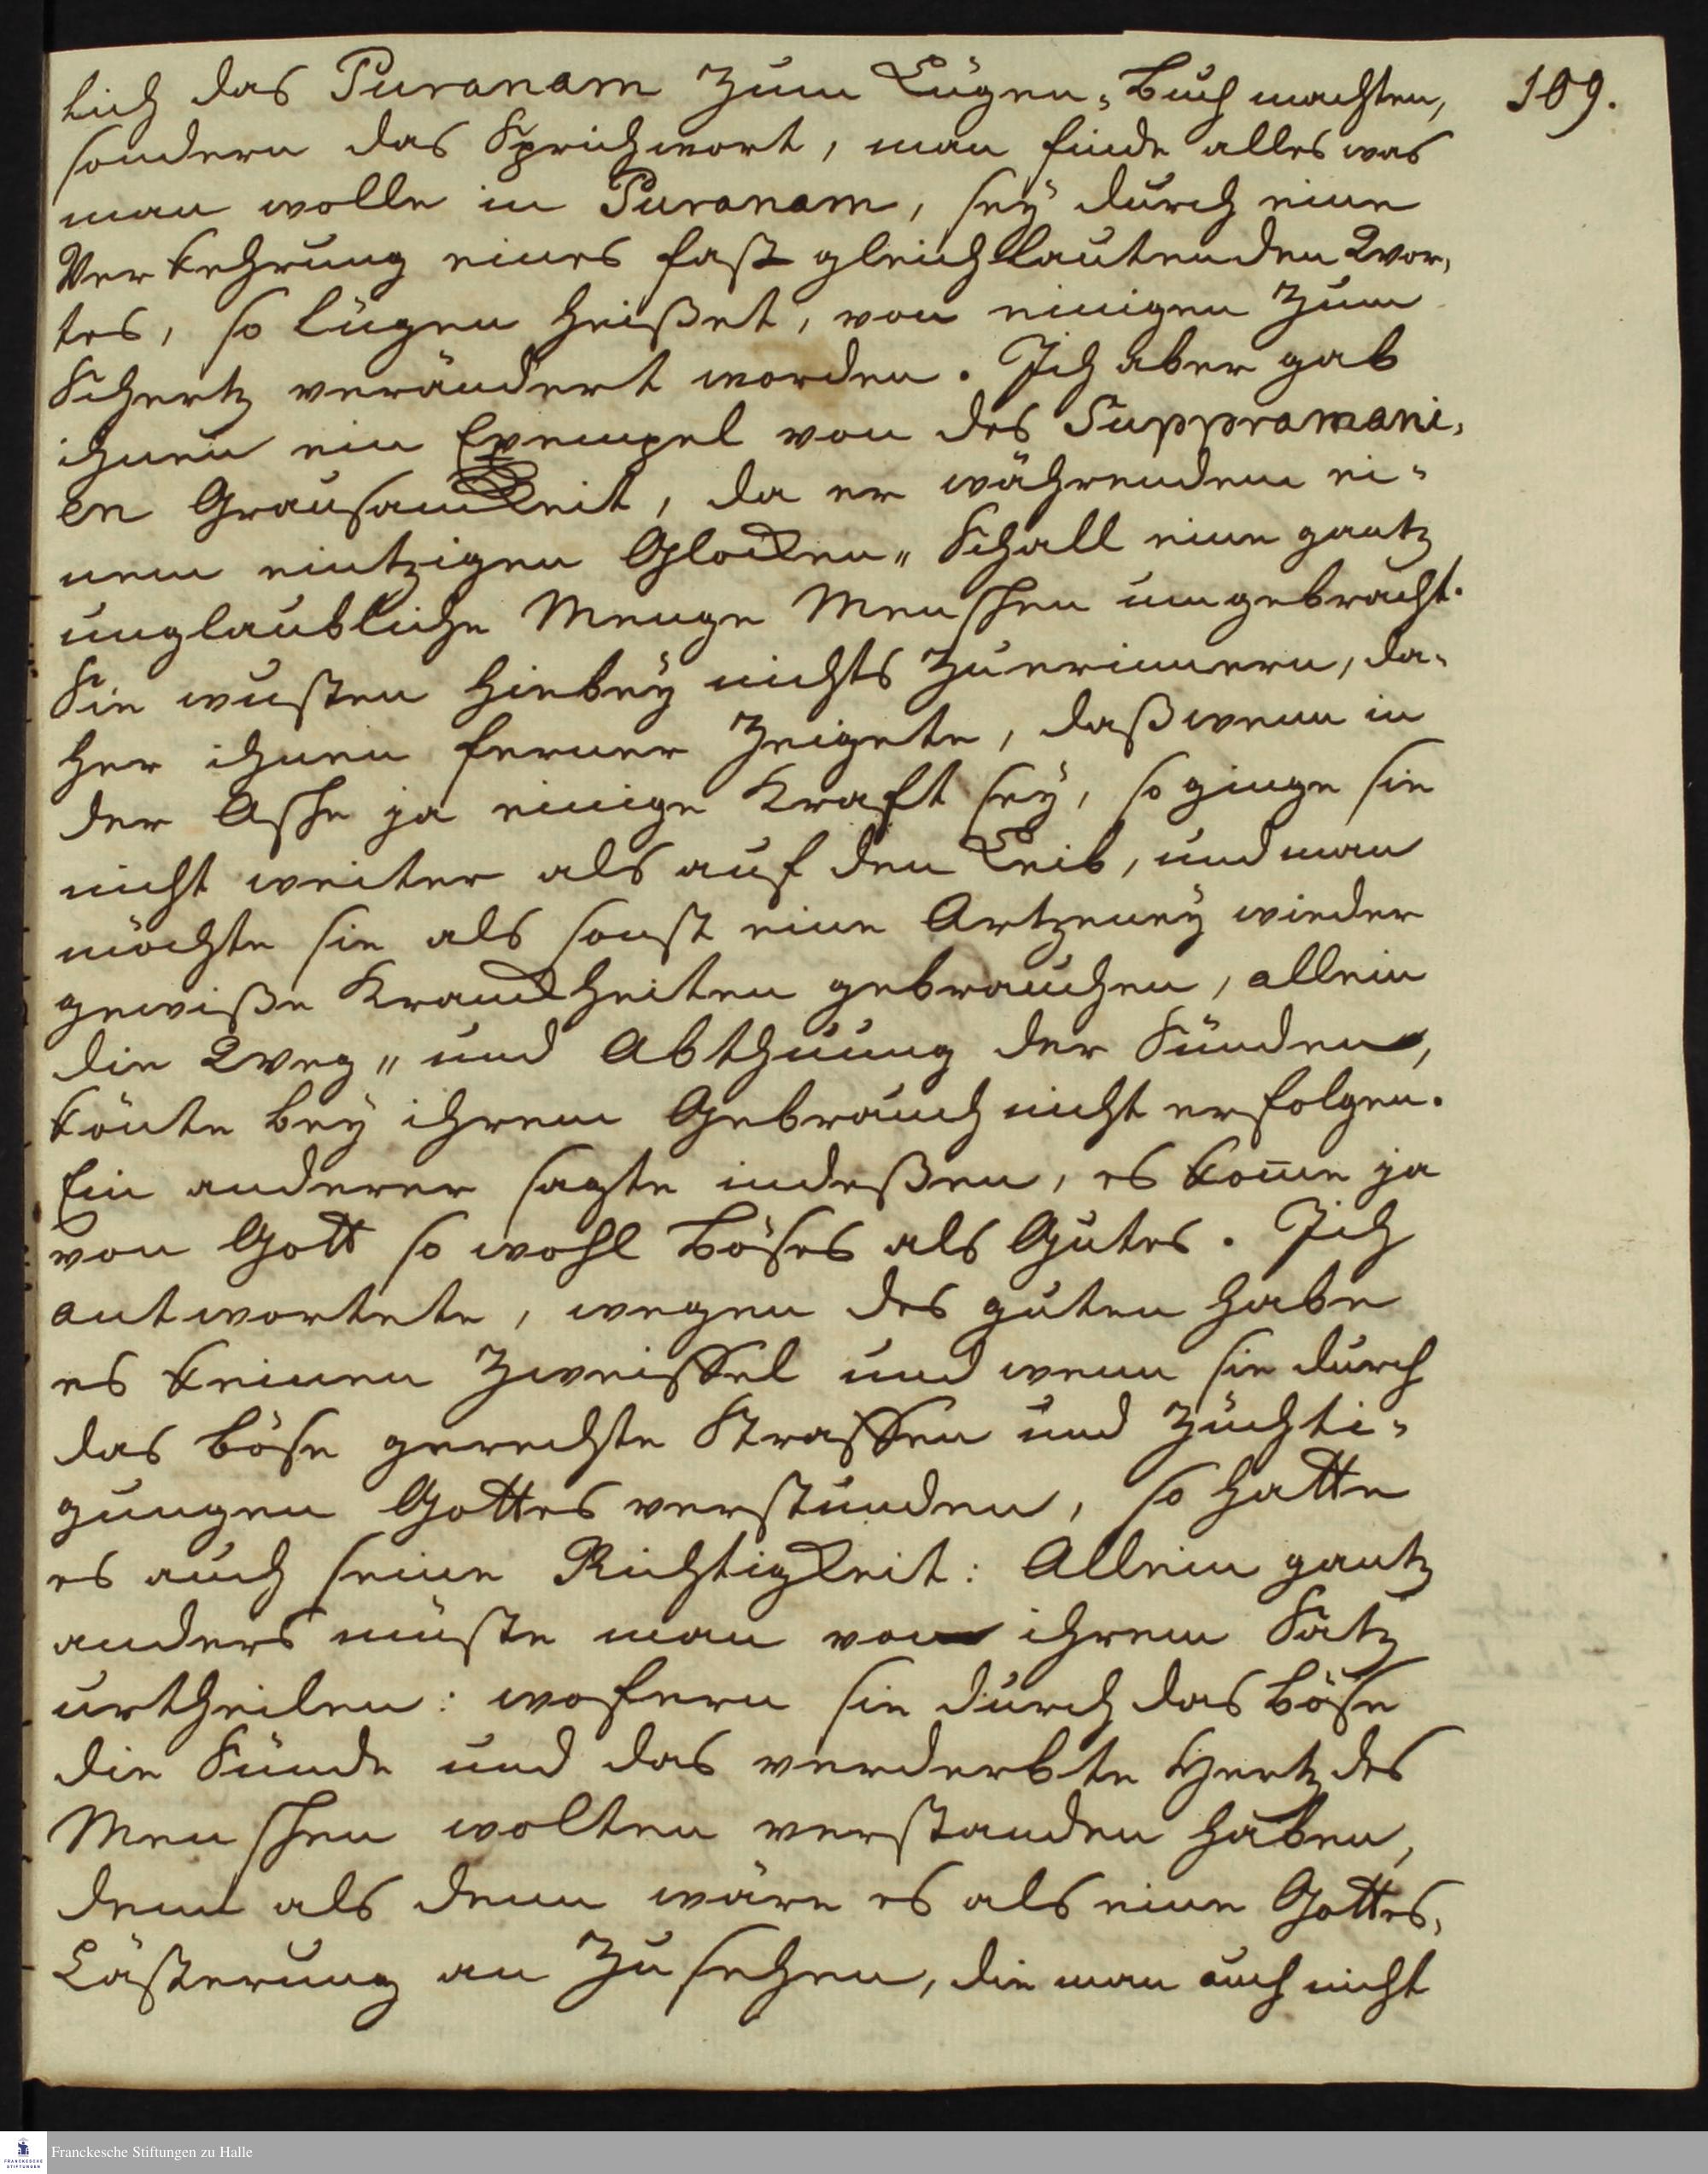 109.
lich das Puranam zum Lügen-Buch machten,
sondern das Sprichwort, man finde alles was
man wolle in Puranam, sey durch eine
Verkehrung eines fast gleichlautenden Wor-
tes, so lügen heißet, von einigen zum
Schertz verändert worden. Ich aber gab
ihnen ein Exempel von des Suppramani-
en Grausamkeit, da er währendem ei-
nem eintzigen Glocken-Schall eine gantz
unglaubliche Menge Menschen umgebracht.
Sie wusten hiebey nichts zu erinnern, da-
her ihnen ferner zeigete, daß wenn in
der Asche ja einige Krafft sey, so ginge sie
nicht weiter als auf den Leib, und man
möchte sie als sonst eine Artzeney wieder
gewiße Kranckheiten gebrauchen, allein
die Weg- und Abthuung der Sünden,
könte bey ihrem Gebrauch nicht erfolgen.
Ein anderer sagte indeßen, es kom̅e ja
von Gott so wohl böses als Gutes. Ich
antwortete, wegen des guten habe
es keinen Zweiffel und wenn sie durch
das böse gerechte Straffen und Züchti-
gungen Gottes verstünden, so hatte
es auch seine Richtigkeit: Allein gantz
anders müste man von ihrem Satz
urtheilen: wofern sie durch das böse
die Sünde und das verderbte Hertz des
Menschen wolten verstanden haben,
denn als denn wäre es als eine Gottes-
Lästerung an zu sehen, die man auch nicht
Franckesche Stiftungen zu Halle